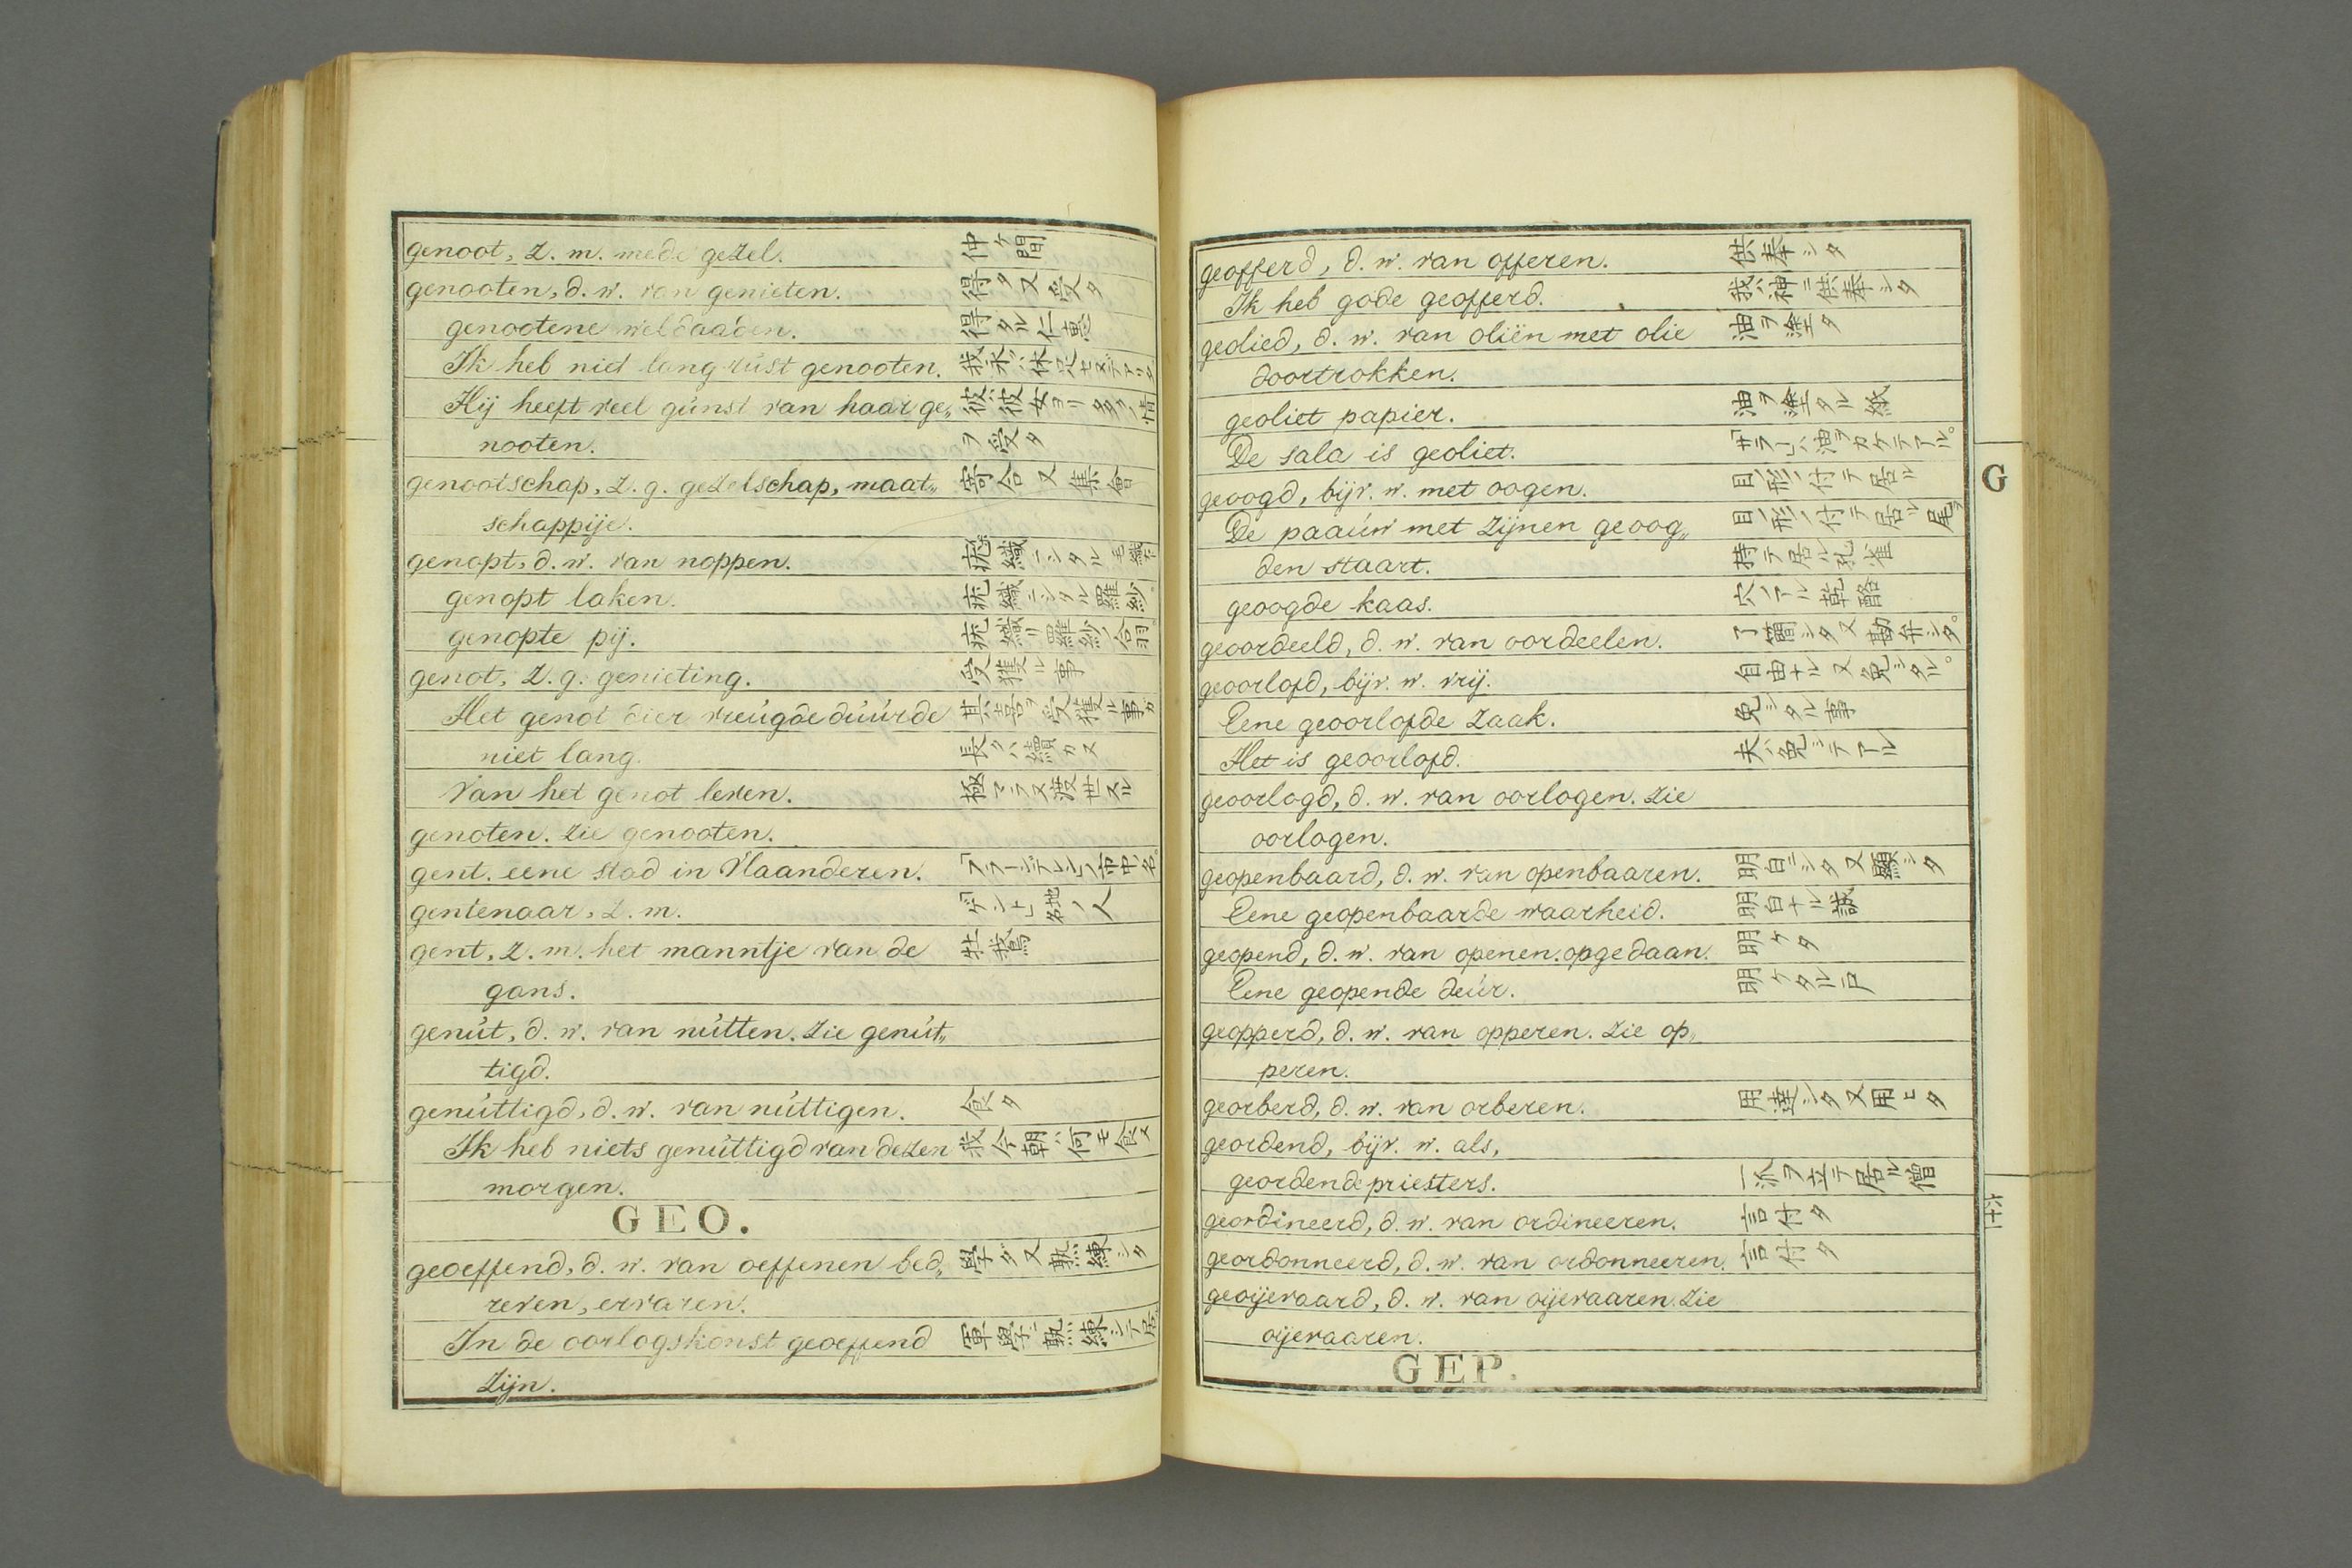 genoot, z. m. mede gezel. 仲ケ間
genooten, d. w. van genieten. 得タ又受タ
genootene weldaaden. 得タル仁恵
Ik heb niet lang rúst genooten. 我永ハ休足セズデアリタ
Hij heeft veel gúnst van haar ge„ 彼ハ彼女ヨリ多クノ情
nooten. ヲ受タ
genootschap, z. g. gezelschap, maat„ 寄合又集會
schappije.
genopt, d. w. van noppen.
genopt laken.
genopte pij.
genot, z. g. genieting. 受獲ル事
Het genot dier vreúgde dúúrde 其喜ヲ受獲ル事ガ
niet lang. 長クハ續カヌ
Van het genot leven. 極マラヌ渡世スル
genoten. Zie genooten.
gent. eene stad in Vlaanderen.
gentenaar, z. m. 「ゲント」地名ノ人
gent, z. m. het manntje van de 牡鵞
gans.
genút, d. w. van nútten. Zie genút„
tigd.
genúttigd, d. w. van núttigen. 食タ
Ik heb niets genúttigd van dezen 我今朝ハ何モ食ヌ
morgen.
GEO.
geoeffend, d. w. van oeffenen bed„ 學ダ又熟練シタ
reven, ervaren.
In de oorlogskonst geoeffend 軍學ニ熟練シテ居
zijn.
geofferd, d. w. van offeren. 供奉シタ
Ik heb gode geofferd. 我ハ神ニ供奉シタ
geolied, d. w. van oliën met olie 油ヲ塗タ
doortrokken.
geoliet papier. 油ヲ塗タル紙
De sala is geoliet. 「サラー」ハ油ヲカケテアル。
geoogd, bijv. w. met oogen. 目ノ形ノ付テ居ル
De paaúw met zijnen geoog„ 目ノ形ノ付テ居ル尾ヲ
den staart. 持テ居ル孔雀
geoogde kaas. 穴ノアル乾酪
geoordeeld, d. w. van oordeelen. 了簡シタ又勘弁シタ。
geoorlofd, bijv. w. vrij. 自由ナル又免シタル。
Eene geoorlofde zaak. 免シタル事
Het is geoorlofd. 夫ハ免シテアル
geoorlogd, d. w. van oorlogen. Zie
oorlogen.
geopenbaard, d. w. van openbaaren. 明白ニシタ又顯シタ
Eene geopenbaarde waarheid. 明白ナル誠
geopend, d. w. van openen. opgedaan. 明ケタ
Eene geopende deúr. 明ケタル戸
geopperd, d. w. van opperen. Zie op„
peren.
georberd, d. w. van orberen. 用達シタ又用ヒタ
geordend, bijv. w. als,
geordende priesters. 一派ヲ立テ居ル僧
geordineerd, d. w. van ordineeren. 言付タ
geordonneerd, d. w. van ordonneeren. 言付タ
geoijevaard, d. w. van oijevaaren. Zie
oijevaaren.
GEP.
G